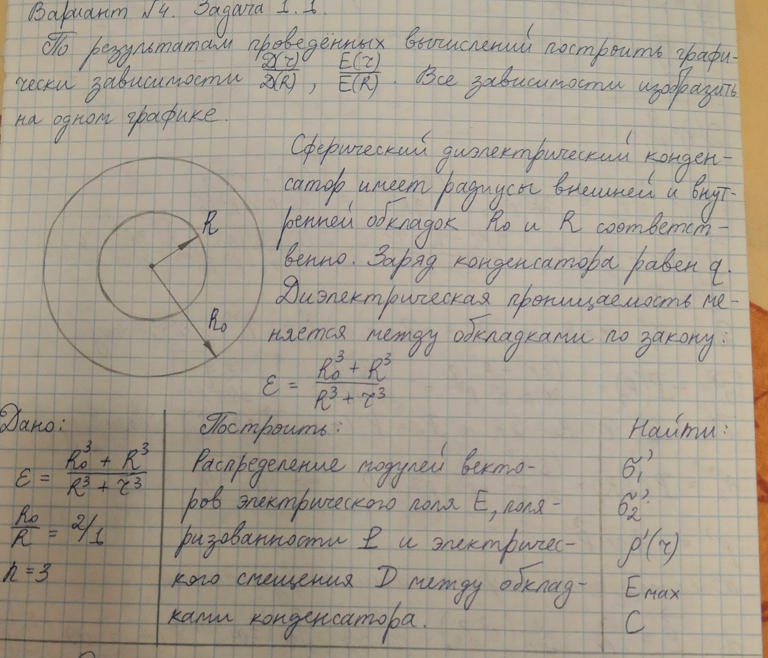 Вариант №4. Задача 1.1.
По результатам проведённых вычислений построить графи-
чески зависимости D(r)/D(R), E(r)/E(R). Все зависимости изобразить
на одном графике.
Сферический диэлектрический конден-
сатор имеет радиусы внешней и внут-
ренней обкладок R₀ и R соответст-
венно. Заряд конденсатора равен q.
Диэлектрическая проницаемость ме-
няется между обкладками по закону:
ε = (R₀³ + R³)/(R³ + r³)
R
R₀
Дано:
ε = (R₀³ + R³)/(R³ + r³)
R₀/R = 2/1
n = 3
Построить:
Распределение модулей векто-
ров электрического поля E, поля-
ризованности P и электричес-
кого смещения D между обклад-
ками конденсатора.
Найти:
σ₁'
σ₂'
ρ'(r)
Eмах
C